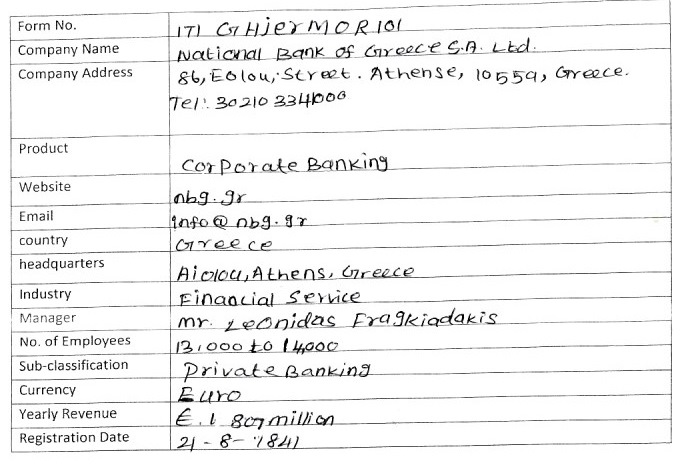 Form No. ITI GHJerMOR101
Company Name National Bank of Greece S.A. Ltd.
Company Address 86, Eolou, Street. Athense, 10559, Greece.
Tel: 30210 3341000
Product Corporate Banking
Website nbg.gr
Email info@nbg.gr
country Greece
headquarters Aiolou, Athens, Greece
Industry Financial Service
Manager mr. Leonidas Fragkiadakis
No. of Employees 13,000 to 14,000
Sub-classification Private Banking
Currency Euro
Yearly Revenue €.1 807 million
Registration Date 21-8-1841